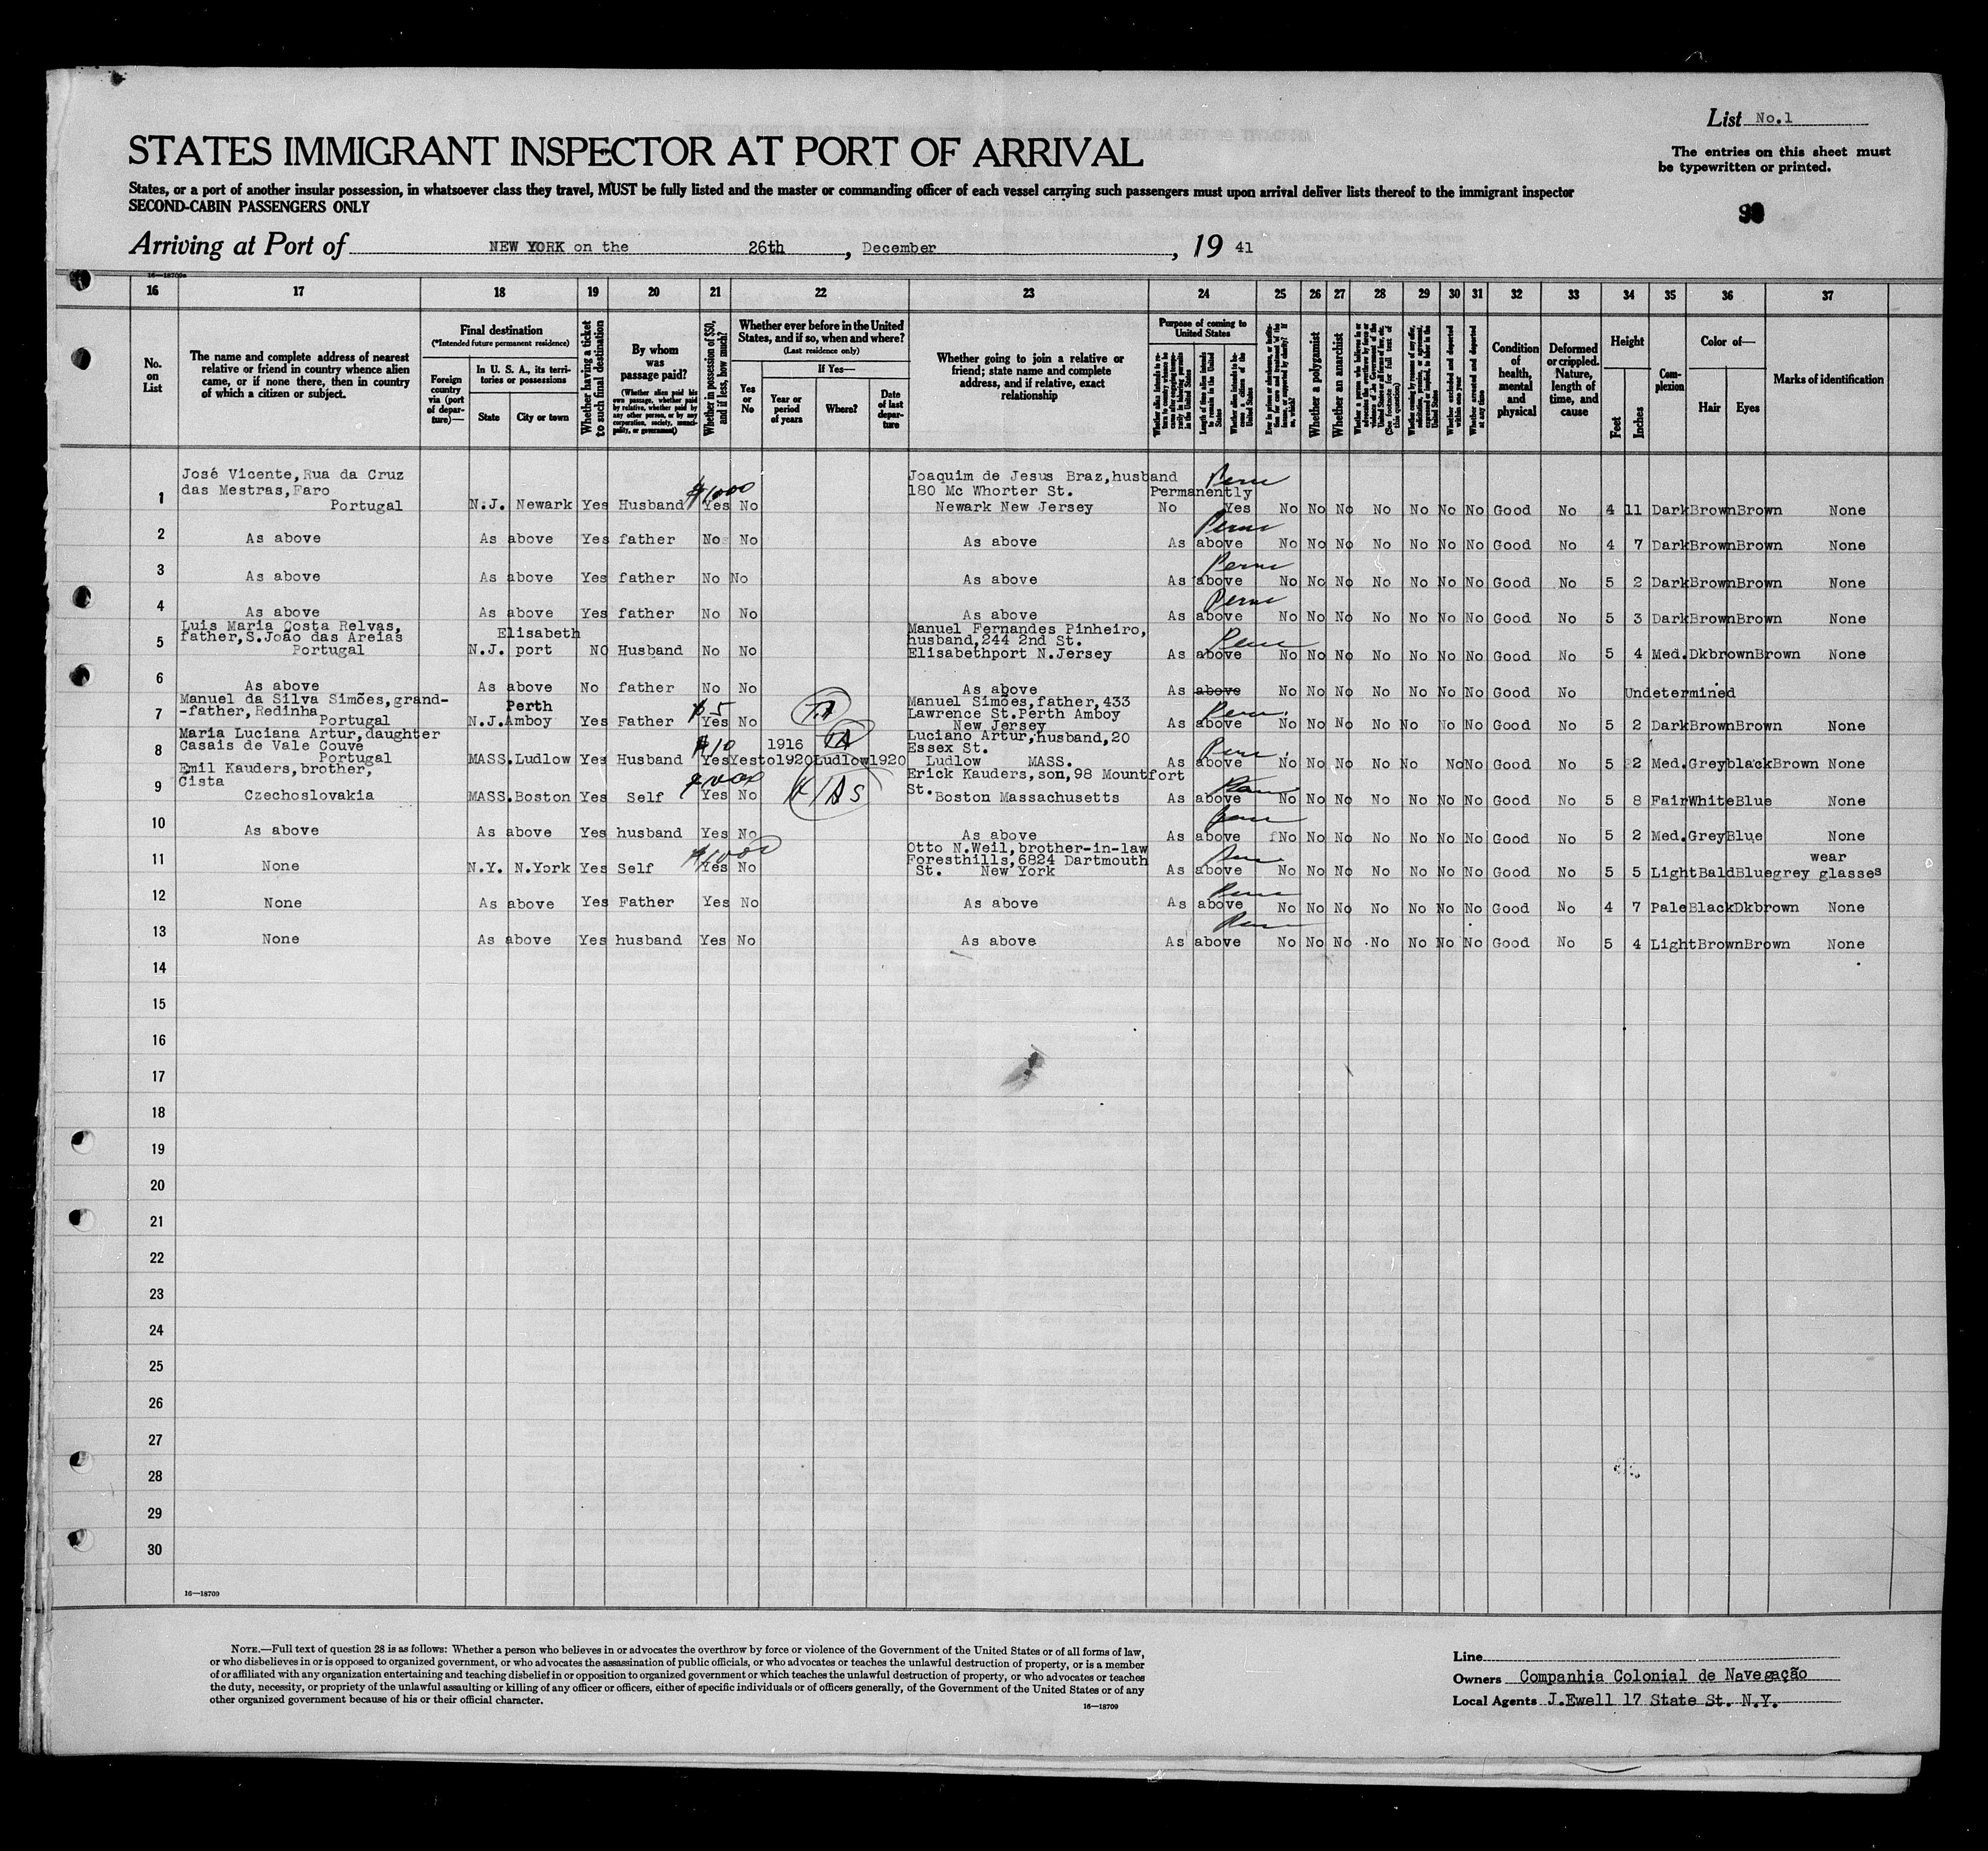 List No.1
STATES IMMIGRANT INSPECTOR AT PORT OF ARRIVAL
The entries on this sheet must
be typewritten or printed.
States, or a port of another insular possession, in whatsoever class they travel, MUST be fully listed and the master or commanding officer of each vessel carrying such passengers must upon arrival deliver lists thereof to the immigrant inspector
SECOND-CABIN PASSENGERS ONLY
Arriving at Port of NEW YORK on the 26th, December, 19 41
16—18709a
16 17 18 19 20 21 22 23 24 25 26 27 28 29 30 31 32 33 34 35 36 37
No. on List
The name and complete address of nearest relative or friend in country whence alien came, or if none there, then in country of which a citizen or subject.
Final destination
(*Intended future permanent residence)
Foreign country via (port of departure)—
In U. S. A., its territories or possessions
State
City or town
Whether having a ticket to such final destination
By whom was passage paid?
(Whether alien paid his own passage, whether paid by relative, whether paid by any other person, or by any corporation, society, municipality, or government)
Whether in possession of $50, and if less, how much?
Whether ever before in the United States, and if so, when and where?
(Last residence only)
Yes or No
If Yes—
Year or period of years
Where?
Date of last departure
Whether going to join a relative or friend; state name and complete address, and if relative, exact relationship
Purpose of coming to United States
Length of time alien intends to remain in the United States
Whether alien intends to become a citizen of the United States
Whether a polygamist
Whether an anarchist
Condition of health, mental and physical
Deformed or crippled. Nature, length of time, and cause
Height
Feet
Inches
Complexion
Color of—
Hair
Eyes
Marks of identification
1 José Vicente,Rua da Cruz das Mestras,Faro Portugal N.J. Newark Yes Husband $1000 Yes No Joaquim de Jesus Braz,husband 180 Mc Whorter St. Newark New Jersey Permanently Perm No Yes No No No No No No No Good No 4 11 Dark Brown Brown None
2 As above As above Yes father No No As above Perm As above No No No No No No No Good No 4 7 Dark Brown Brown None
3 As above As above Yes father No No As above Perm As above No No No No No No No Good No 5 2 Dark Brown Brown None
4 As above As above Yes father No No As above Perm As above No No No No No No No Good No 5 3 Dark Brown Brown None
5 Luis Maria Costa Relvas, father,S.João das Areias Portugal N.J. Elisabeth port NO Husband No No Manuel Fernandes Pinheiro, husband,244 2nd St. Elisabethport N.Jersey Perm As above No No No No No No No Good No 5 4 Med. Dkbrown Brown None
6 As above As above No father No No As above As above No No No No No No No Good No Undetermined
7 Manuel da Silva Simões,grand--father,Redinha Portugal N.J. Perth Amboy Yes Father $5 Yes No Manuel Simões,father,433 Lawrence St.Perth Amboy New Jersey Perm As above No No No No No No No Good No 5 2 Dark Brown Brown None
8 Maria Luciana Artur,daughter Casais de Vale Couve Portugal MASS. Ludlow Yes Husband $10 Yes Yes 1916 to1920 Ludlow 1920 Luciano Artur,husband,20 Essex St. Ludlow MASS. Perm As above No No No No No No No Good No 5 2 Med. Greyblack Brown None
9 Emil Kauders,brother, Cista Czechoslovakia MASS. Boston Yes Self Yes No Erick Kauders,son,98 Mountfort St. Boston Massachusetts As above No No No No No No No Good No 5 8 Fair White Blue None
10 As above As above Yes husband Yes No As above Perm As above No No No No No No No Good No 5 2 Med. Grey Blue None
11 None N.Y. N.York Yes Self $1000 Yes No Otto N.Weil,brother-in-law Foresthills,6824 Dartmouth St. New York Perm As above No No No No No No No Good No 5 5 Light Bald Bluegrey wear glasses
12 None As above Yes Father Yes No As above Perm As above No No No No No No No Good No 4 7 Pale Black Dkbrown None
13 None As above Yes husband Yes No As above Perm As above No No No No No No No Good No 5 4 Light Brown Brown None
14
15
16
17
18
19
20
21
22
23
24
25
26
27
28
29
30
16—18709
NOTE.—Full text of question 28 is as follows: Whether a person who believes in or advocates the overthrow by force or violence of the Government of the United States or of all forms of law,
or who disbelieves in or is opposed to organized government, or who advocates the assassination of public officials, or who advocates or teaches the unlawful destruction of property, or is a member
of or affiliated with any organization entertaining and teaching disbelief in or opposition to organized government or which teaches the unlawful destruction of property, or who advocates or teaches
the duty, necessity, or propriety of the unlawful assaulting or killing of any officer or officers, either of specific individuals or of officers generally, of the Government of the United States or of any
other organized government because of his or their official character.
16—18709
Line
Owners Companhia Colonial de Navegação
Local Agents J.Ewell 17 State St. N.Y.